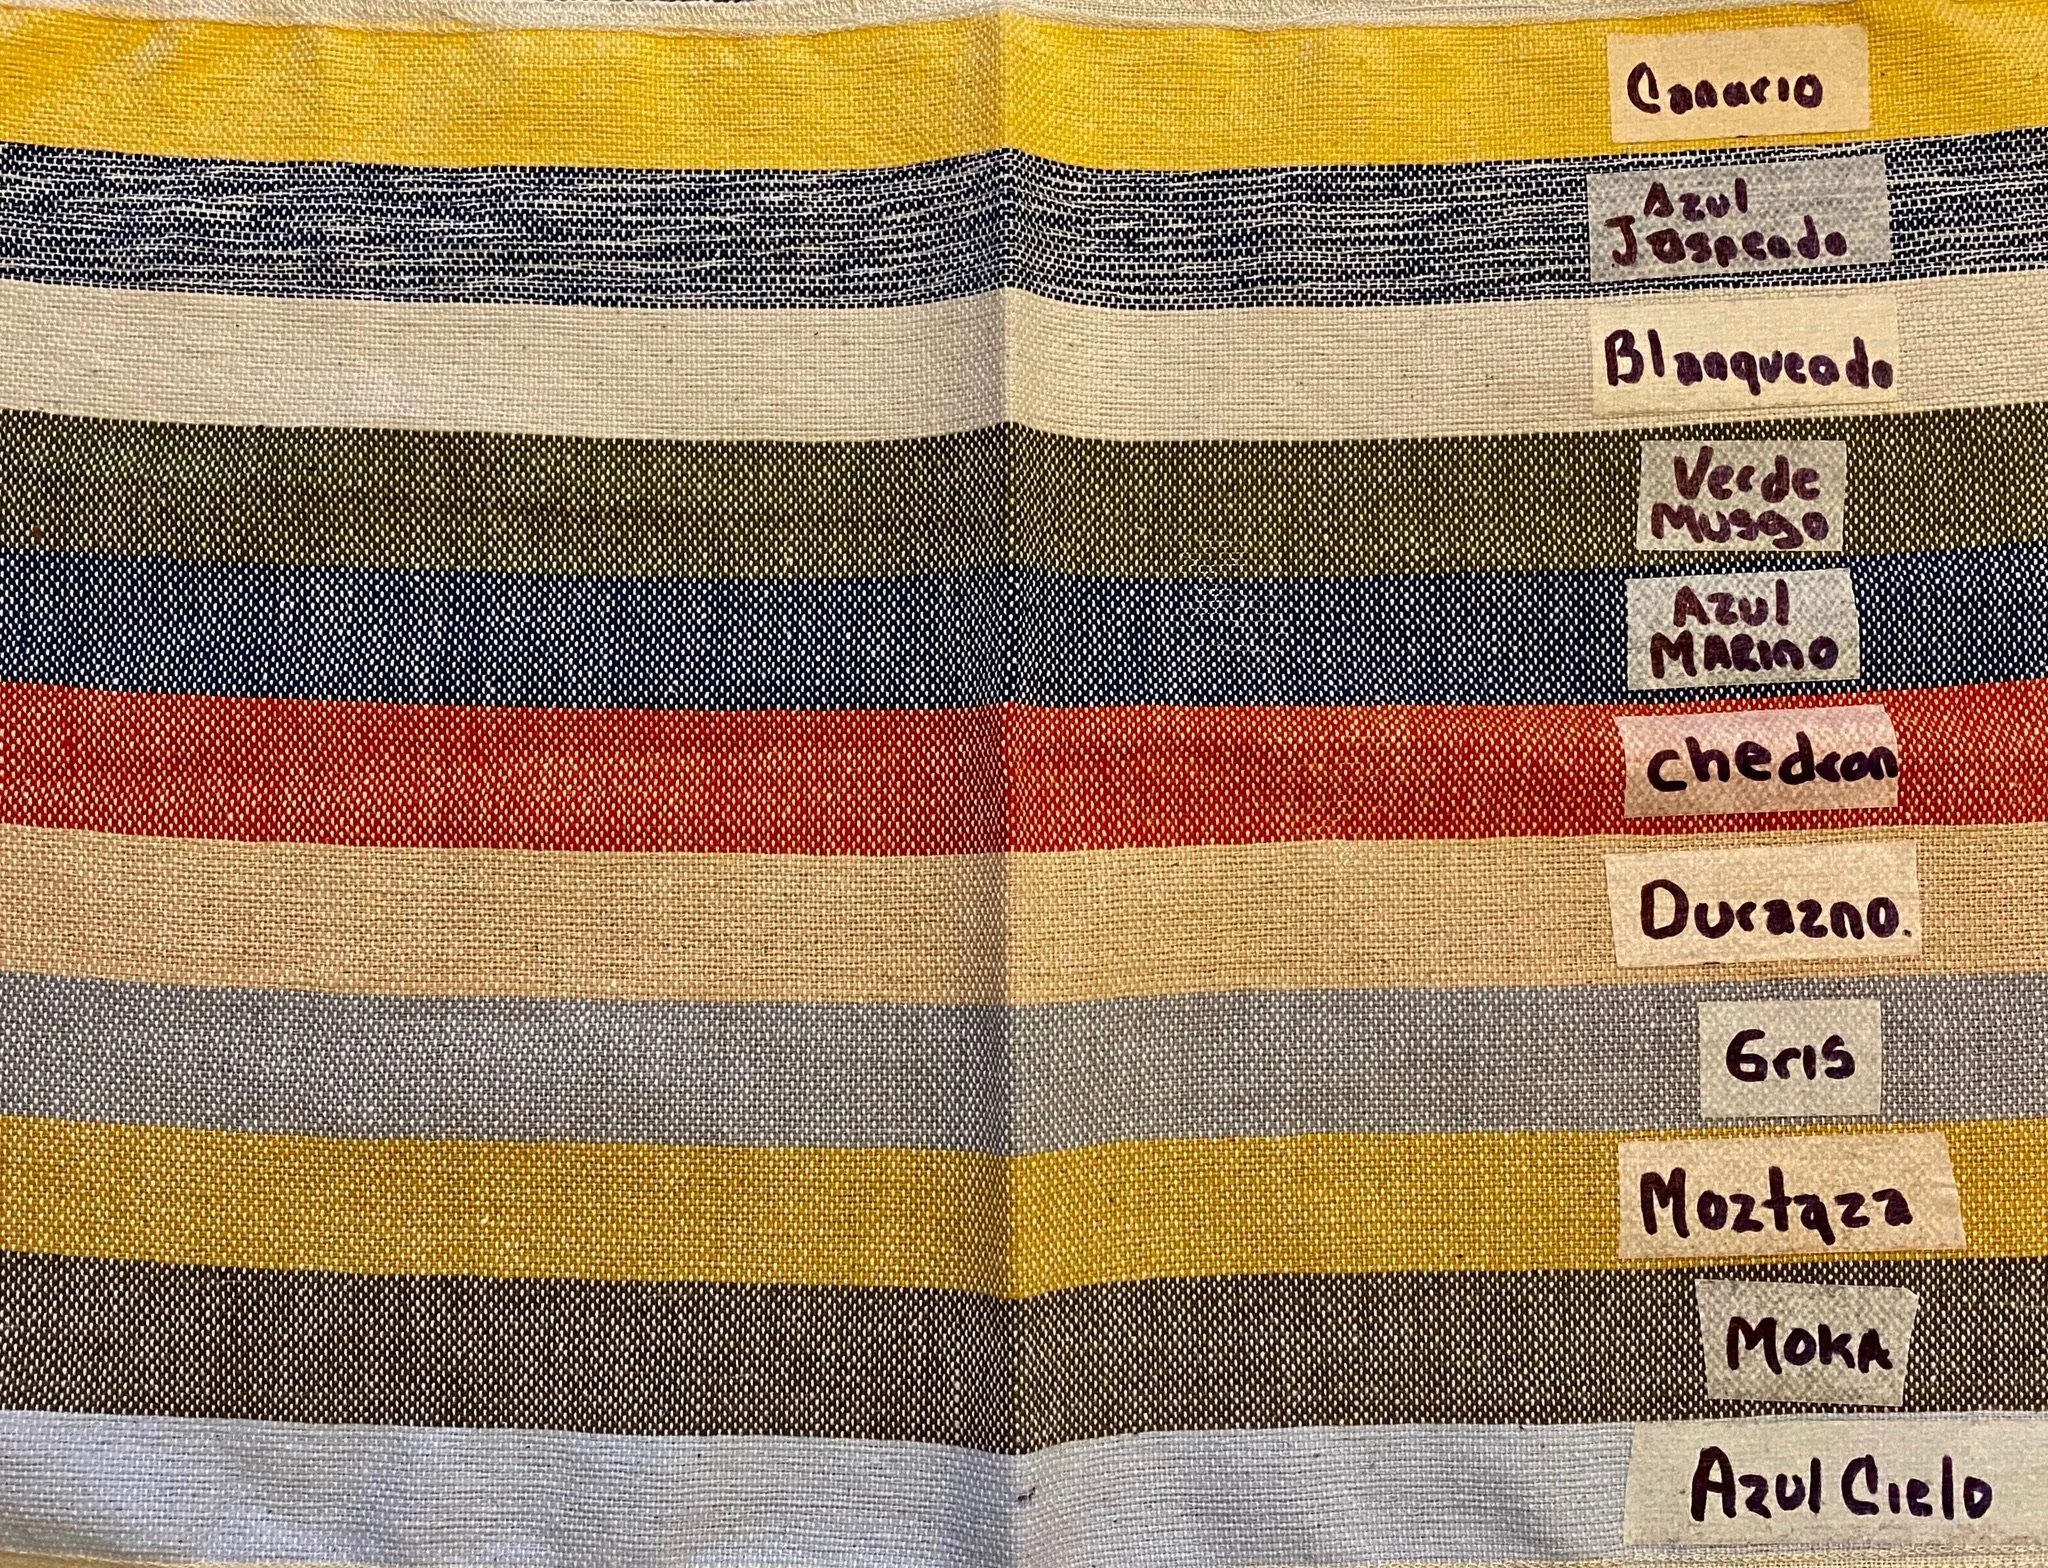 Canario
Azul
Jaspeado
Blanqueado
Verde
Musgo
Azul
MARINO
chedron
Durazno.
Gris
Moztaza
MOKA
Azul Cielo